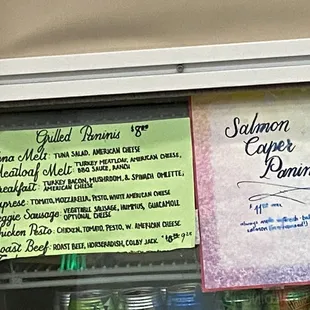 Grilled Paninis $8.99
una Melt: TUNA SALAD, AMERICAN CHEESE
Meatloaf Melt: TURKEY MEATLOAF, AMERICAN CHEESE,
BBQ SAUCE, RANCH
reakfast: TURKEY BACON, MUSHROOM, & SPINACH OMELETTE,
AMERICAN CHEESE
aprese: TOMATO, MOZZARELLA, PESTO, WHITE AMERICAN CHEESE
eggie Sausage: VEGETABLE SAUSAGE, HUMMUS, GUACAMOLE
OPTIONAL CHEESE
hicken Pesto: CHICKEN, TOMATO, PESTO, W. AMERICAN CHEESE
oast Beef: ROAST BEEF, HORSERADISH, COLBY JACK
Salmon
Caper
Panin
always made with fresh
salmon